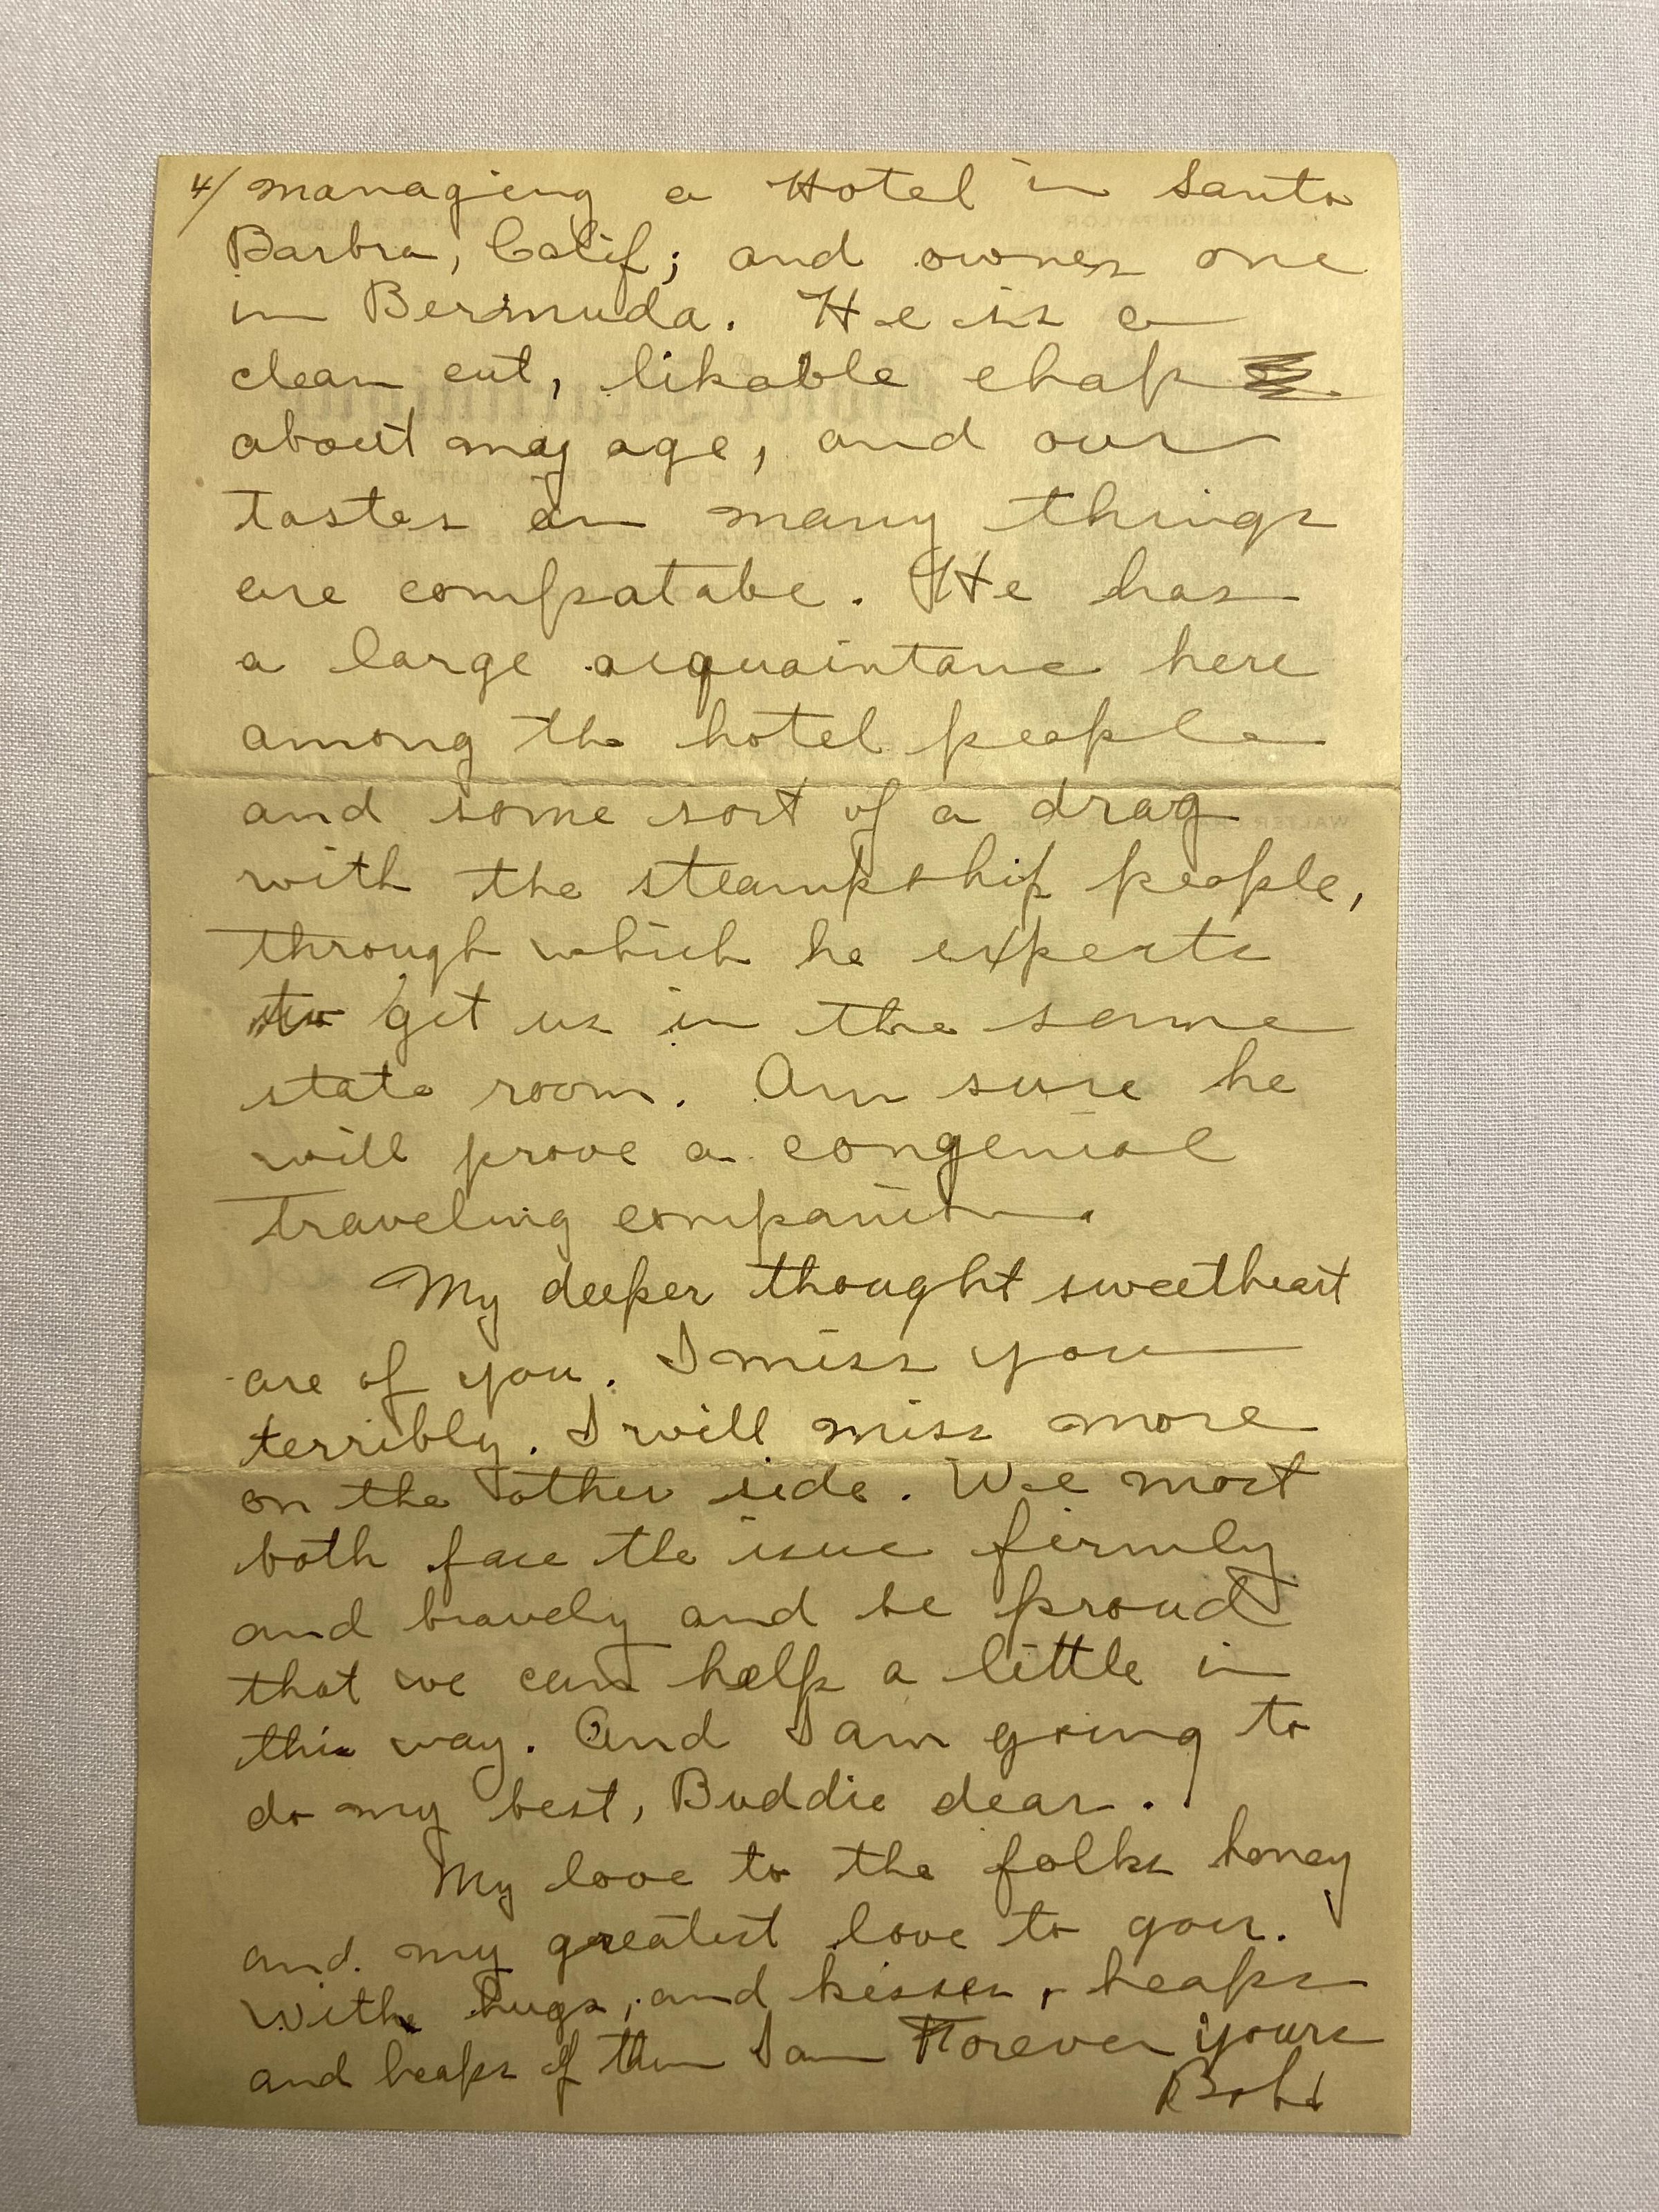 4/ managing a Hotel in Santa
Barbra, Calif; and ownes one
in Bermuda. He is a
clean cut, likable chap
about my age, and our
tastes on many things
are compatabe. He has
a large acquaintance here
among the hotel people
and some sort of a drag
with the steampship people,
through which he expects
to get us in the same
state room. Am sure he
will prove a congenial
traveling companion.
My deeper thought sweetheart
are of you. I miss you
terribly. I will miss more
on the other side. We most
both face the issue firmly
and bravely and be proud
that we can help a little in
this way. And I am going to
do my best, Buddie dear.
My love to the folks honey
and my greatest love to you.
With hugs, and kisses, heaps
and heaps of them I am Forever yours
Bob